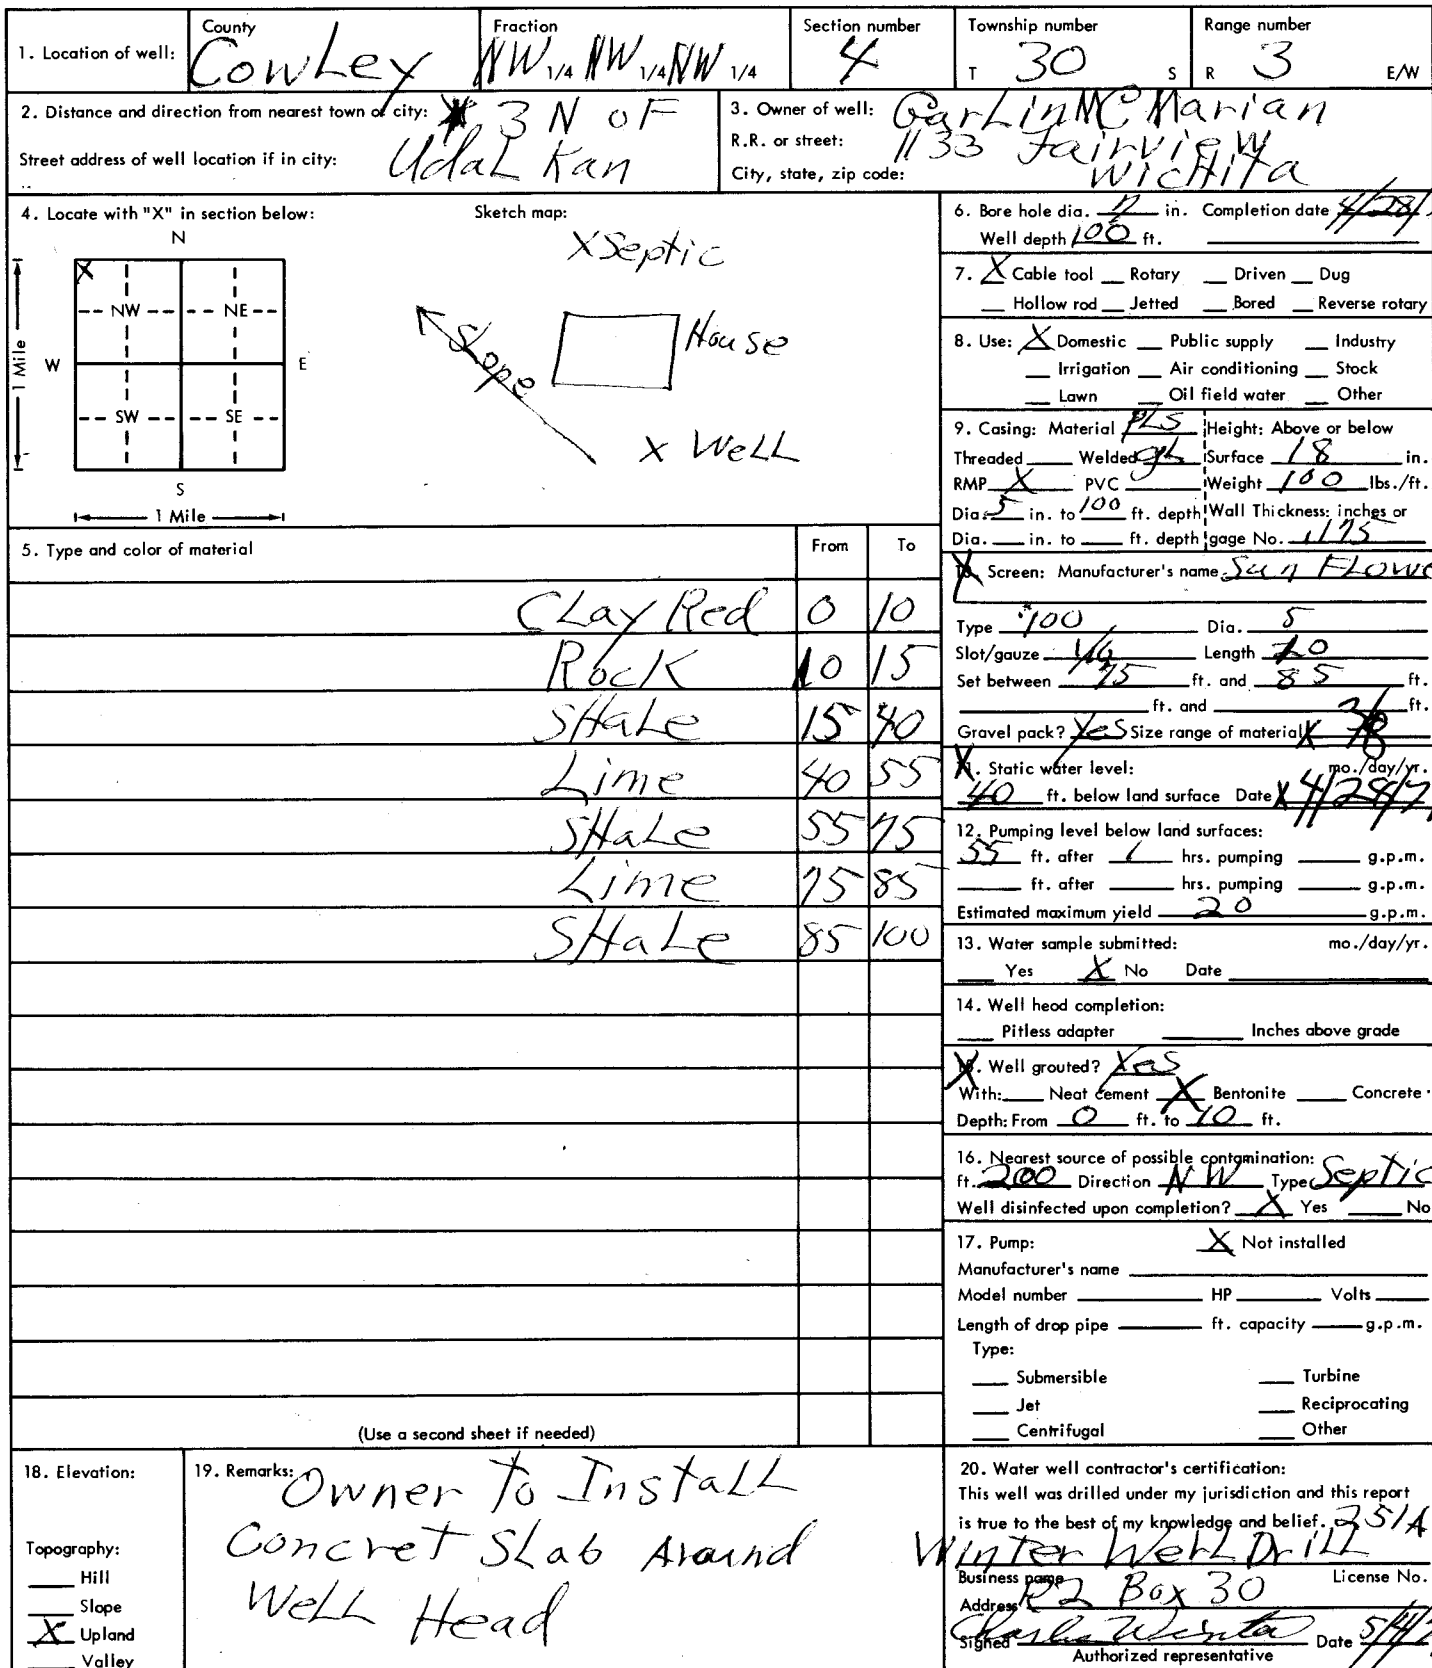 1. Location of well: County Cowley Fraction NW 1/4 NW 1/4 NW 1/4 Section number 4 Township number T 30 S Range number R 3 E/W
2. Distance and direction from nearest town or city: 3 N oF
Street address of well location if in city: UdaL Kan
3. Owner of well: GarLin McMarian
R.R. or street: 1133 Fairview
City, state, zip code: Wichita
4. Locate with "X" in section below:
N
X
NW NE
W E
SW SE
S
1 Mile
1 Mile
Sketch map:
X Septic
Slope
House
X WeLL
5. Type and color of material From To
CLay Red 0 10
Rock 10 15
SHaLe 15 40
Lime 40 55
SHaLe 55 75
Lime 75 85
SHaLe 85 100
(Use a second sheet if needed)
6. Bore hole dia. in. Completion date 4/28/
Well depth 100 ft.
7. X Cable tool Rotary Driven Dug
Hollow rod Jetted Bored Reverse rotary
8. Use: X Domestic Public supply Industry
Irrigation Air conditioning Stock
Lawn Oil field water Other
9. Casing: Material PLS Height: Above or below
Threaded Welded gL Surface 18 in.
RMP X PVC Weight 100 lbs./ft.
Dia. 5 in. to 100 ft. depth Wall Thickness: inches or
Dia. in. to ft. depth gage No. .175
Screen: Manufacturer's name Sun FLowe
Type 100 Dia. 5
Slot/gauze 1/16 Length 10
Set between 75 ft. and 85 ft.
ft. and ft.
Gravel pack? Yes Size range of material X 3/8
X. Static water level: mo./day/yr.
40 ft. below land surface Date X 4/28/7
12. Pumping level below land surfaces:
55 ft. after 1 hrs. pumping g.p.m.
ft. after hrs. pumping g.p.m.
Estimated maximum yield 20 g.p.m.
13. Water sample submitted: mo./day/yr.
Yes X No Date
14. Well head completion:
Pitless adapter Inches above grade
X. Well grouted? Yes
With: Neat cement X Bentonite Concrete
Depth: From 0 ft. to 10 ft.
16. Nearest source of possible contamination:
ft. 200 Direction NW Type Septic
Well disinfected upon completion? X Yes No
17. Pump: X Not installed
Manufacturer's name
Model number HP Volts
Length of drop pipe ft. capacity g.p.m.
Type:
Submersible Turbine
Jet Reciprocating
Centrifugal Other
18. Elevation:
Topography:
Hill
Slope
X Upland
Valley
19. Remarks: Owner To InstaLL
Concret SLab Around
WeLL Head
20. Water well contractor's certification:
This well was drilled under my jurisdiction and this report
is true to the best of my knowledge and belief. 251A
Winter WeLL DriLL
Business name License No.
Address R2 Box 30
Signed Charles Winter Date 5/4/7
Authorized representative